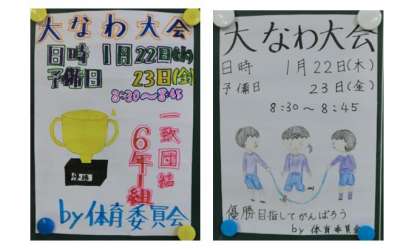 大なわ大会
日時 1月22日(木)
予備日 23日(金)
8:30〜8:45
一致団結
6年1組
by 体育委員会
大なわ大会
日時 1月22日(木)
予備日 23日(金)
8:30〜8:45
優勝目指してがんばろう
by 体育委員会